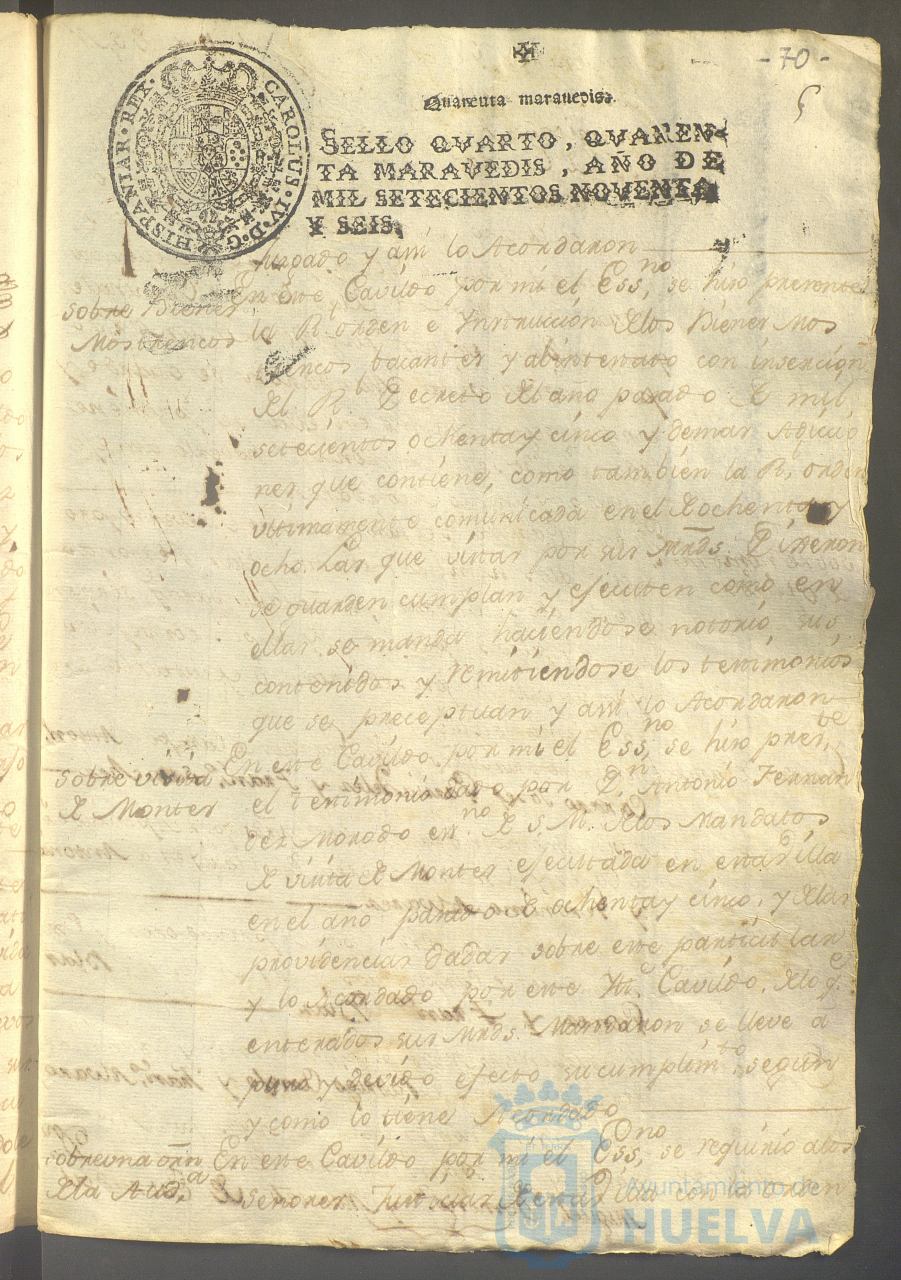 -70-
5
Quarenta maravedis.
SELLO QVARTO, QVAREN-
TA MARAVEDIS, AÑO DE
MIL SETECIENTOS NOVENTA
Y SEIS.
CAROLUS·IV·D·G·HISPANIAR·REX·
Juzgado y assi lo Acordaron
Sobre Bienes
Mostrencos
En este Cavildo por mi el Essno, se hizo presente
la Rl orden e Ynstruccion de los Bienes Mos
trencos bacantes y abintestato con insercion
del Rl Decreto del año pasado de mil
setecientos ochenta y cinco y demas Adiccio
nes que contiene, como tambien la Rl orden
ultimamente comunicada en el de ochenta y
ocho. Las que vistas por sus Mrds. Dixeron
se guarden cumplan y executen como en
ellas se manda haciendose notorio sus
contenidos y remitiendose los testimonios
que se preceptuan y assi lo Acordaron
sobre visita
de Montes
En este Cavildo por mi el Essno, se hizo preste,
el testimonio dado por Dn Antonio Fernan
dez Morodo esno de S. M. de los Mandatos
de visita de Montes executada en esta Villa
en el año pasado de ochenta y cinco, y de las
providencias dadas sobre este particular
y lo Acordado por este Ylt. Cavildo, de lo qe
enterados sus Mrds. Mandaron se lleve a
puro y devido efecto su cumplimto segun
y como lo tiene Acordado
sobre una orn
de la Auda
En este Cavildo por mi el Essno, se requirio a los
señores Justicias de esta Villa con la orden
Ayuntamiento de
HUELVA